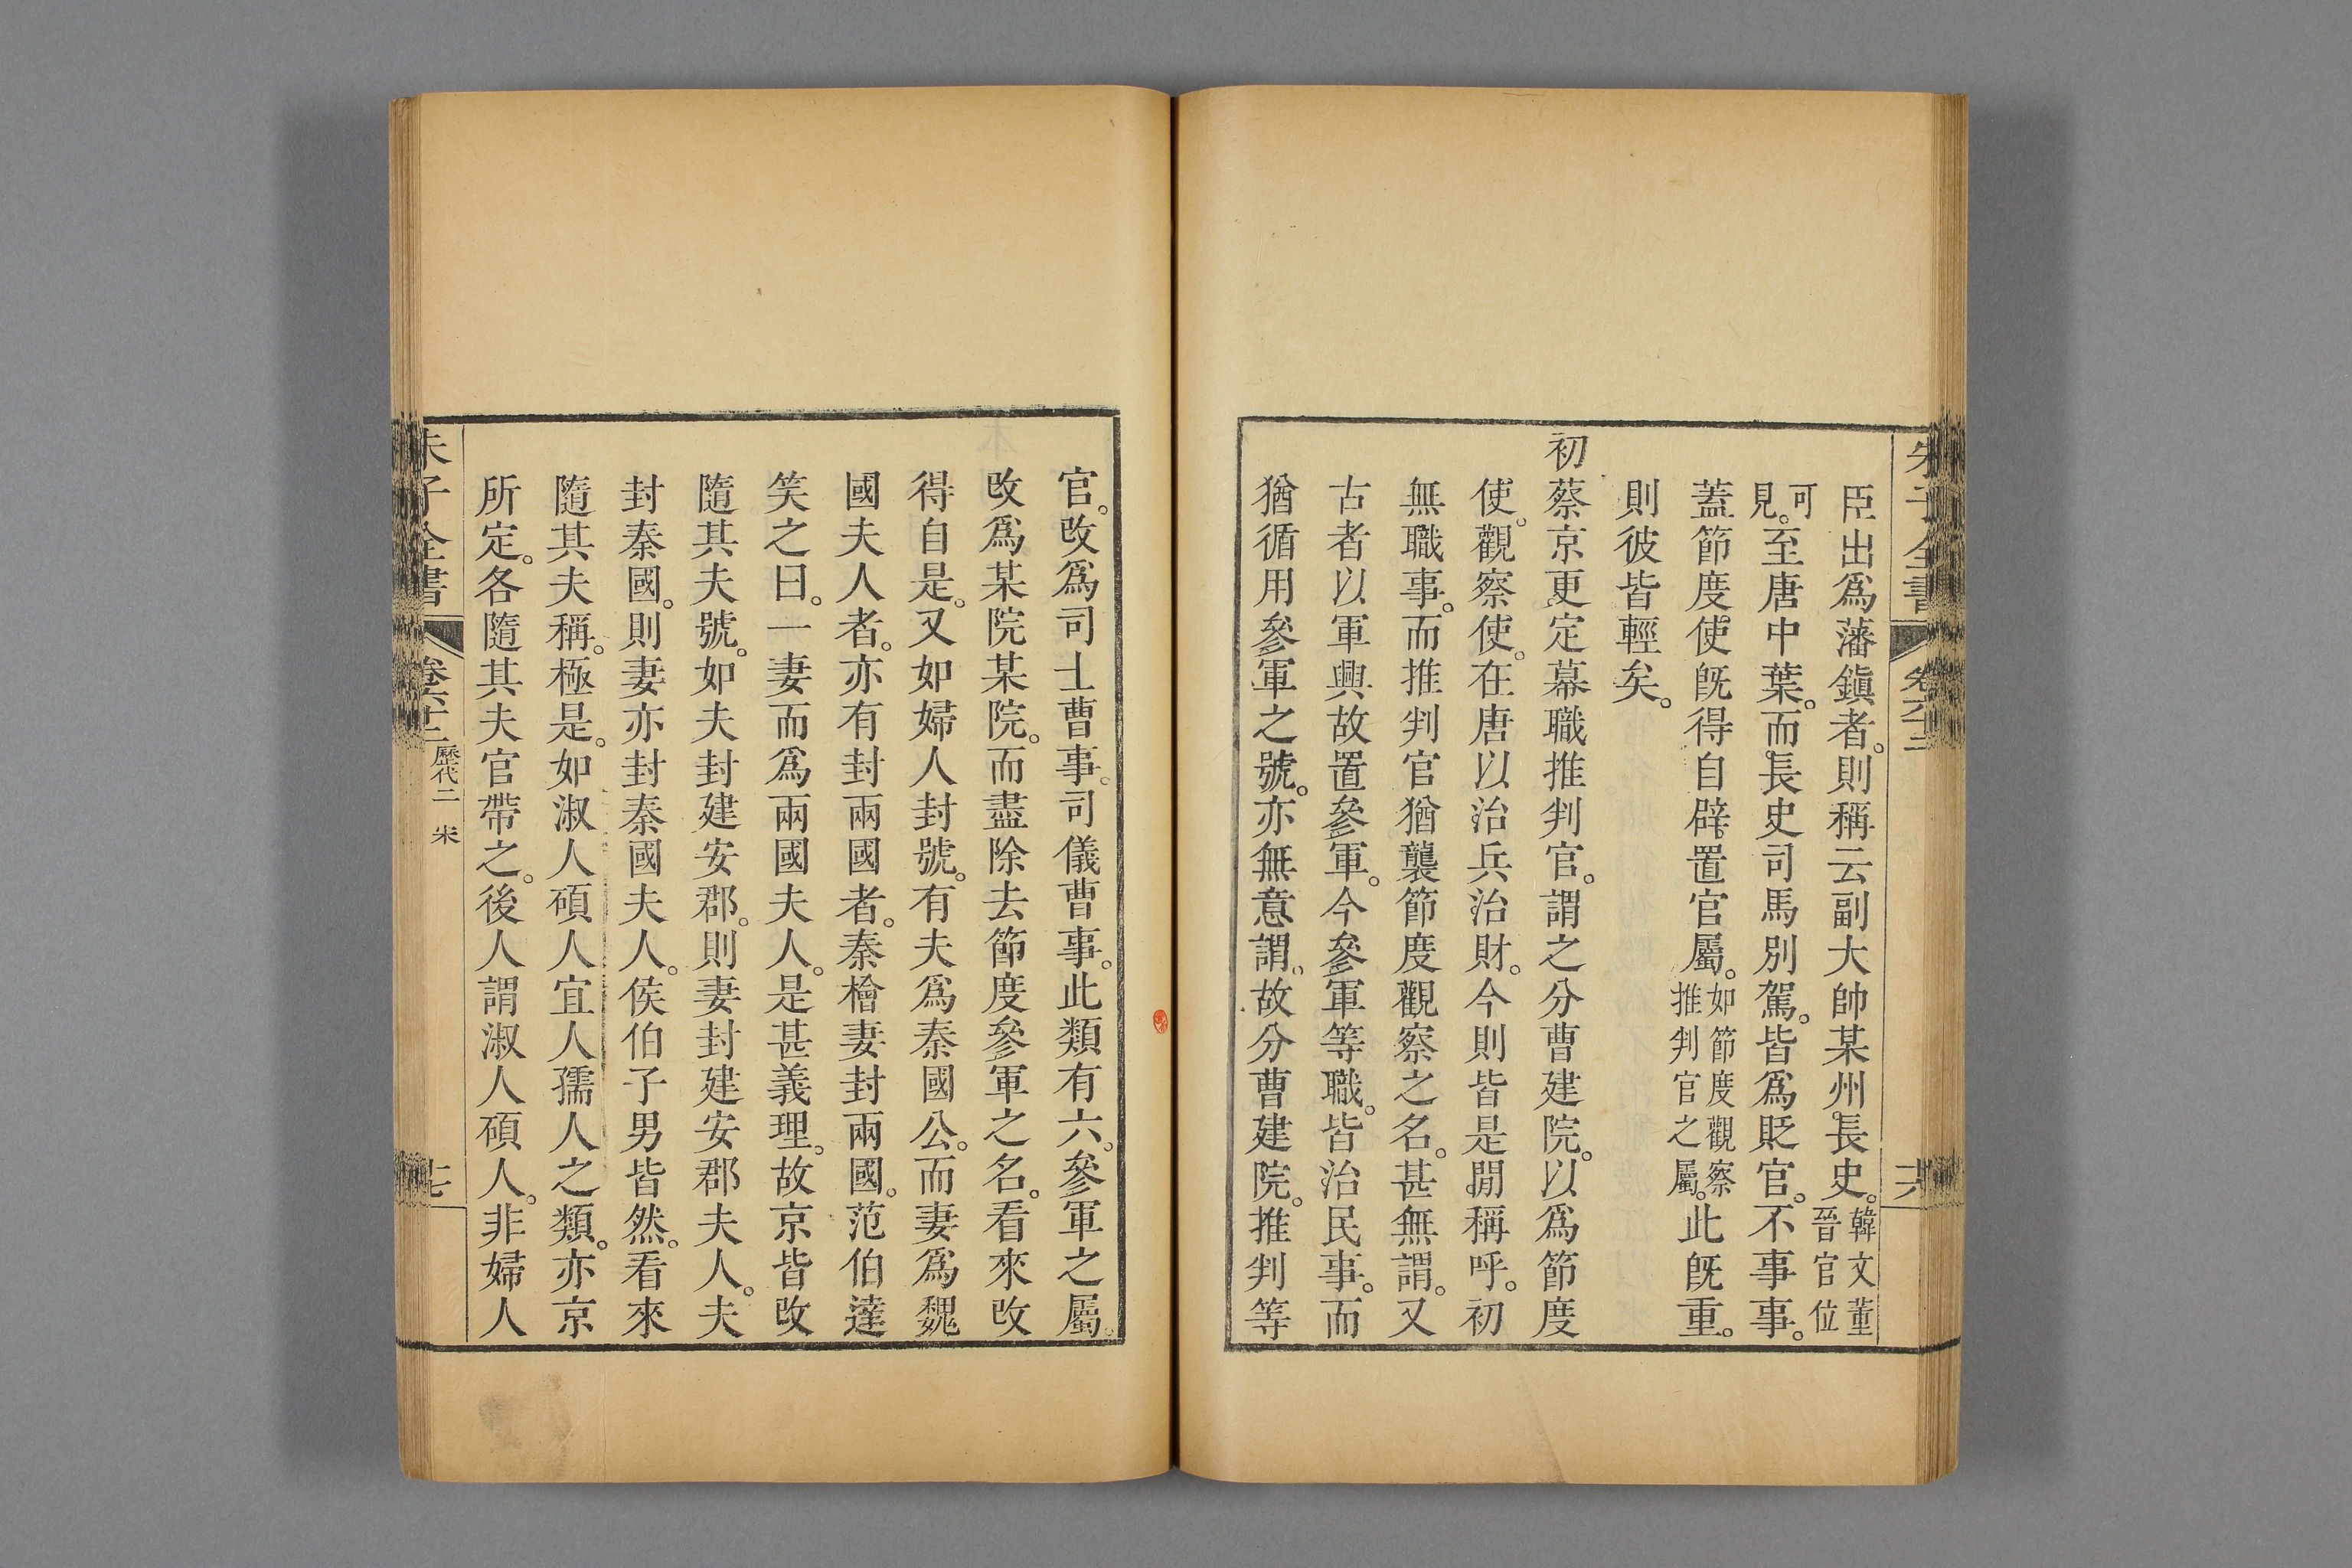 朱子全書 卷六十二 十六
臣出爲藩鎭者。則稱云副大帥某州長史。韓文董晉官位
可見。至唐中葉。而長史司馬別駕。皆爲貶官。不事事。
蓋節度使旣得自辟置官屬。如節度觀察推判官之屬。此旣重。
則彼皆輕矣。
初蔡京更定幕職推判官。謂之分曹建院。以爲節度
使。觀察使。在唐以治兵治財。今則皆是閒稱呼。初
無職事。而推判官猶襲節度觀察之名。甚無謂。又
古者以軍興故置參軍。今參軍等職。皆治民事。而
猶循用參軍之號。亦無意謂。故分曹建院。推判等
官。改爲司士曹事。司儀曹事。此類有六。參軍之屬。
改爲某院某院。而盡除去節度參軍之名。看來改
得自是。又如婦人封號。有夫爲秦國公。而妻爲魏
國夫人者。亦有封兩國者。秦檜妻封兩國。范伯達
笑之曰。一妻而爲兩國夫人。是甚義理。故京皆改
隨其夫號。如夫封建安郡。則妻封建安郡夫人。夫
封秦國。則妻亦封秦國夫人。侯伯子男皆然。看來
隨其夫稱。極是。如淑人碩人宜人孺人之類。亦京
所定。各隨其夫官帶之。後人謂淑人碩人。非婦人
朱子全書 卷六十二 歷代二 宋 十七